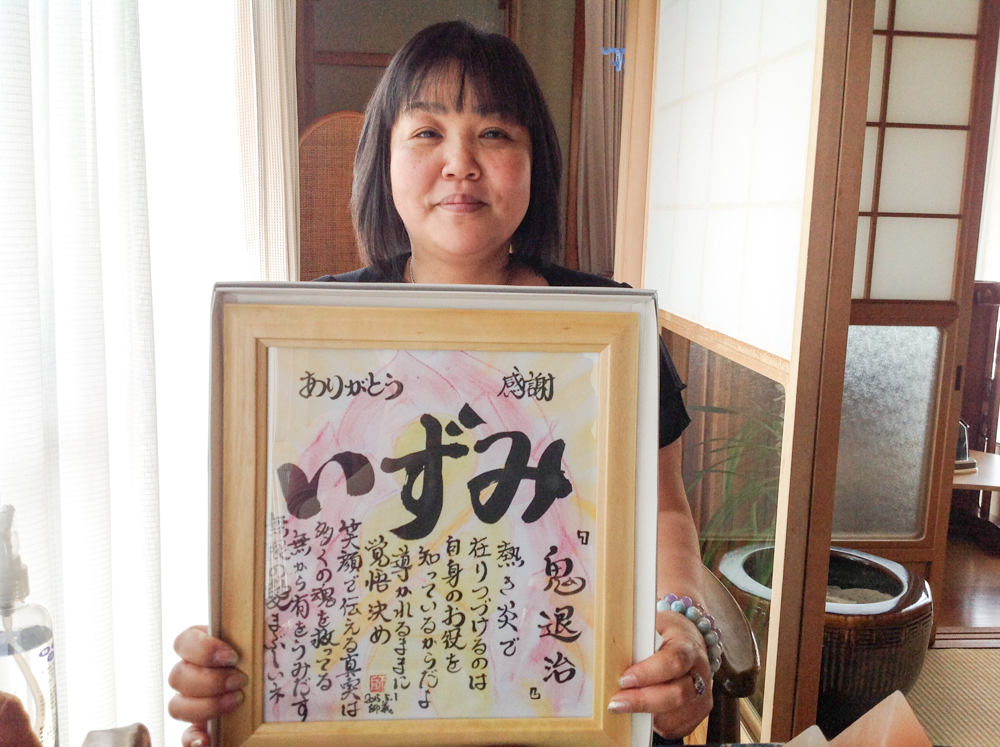 ありがとう　感謝
いずみ
『鬼退治』
熱き炎で
在りつづけるのは
自身のお役を
知っているからだよ
導かれるままに
覚悟決め
笑顔で伝える真実は
多くの魂を救ってる
無から有をうみだす
まぶしいネ